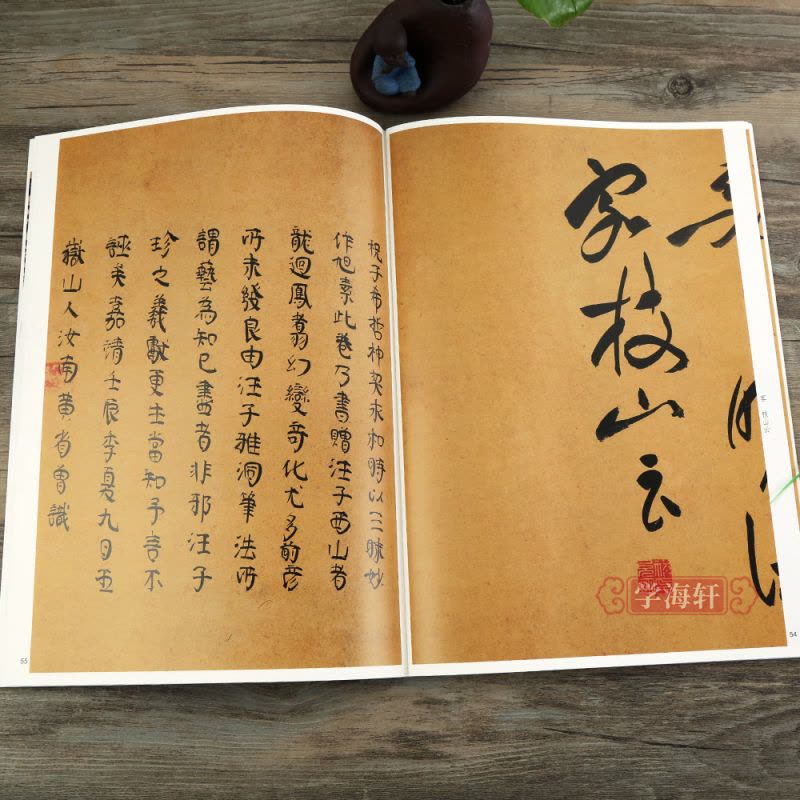 家枝山云
字海轩
54
祝子希哲神契永和時以三昧妙
作旭素此卷乃書贈汪子西山者
龍迴鳳翥幻變奇化尤多前彦
所未良由汪子雅洞筆法所
謂藝為知己盡者非邪汪子
珍之羲獻更生當知予言不
誣矣嘉清壬辰季夏九日五
嶽山人汝南黄省曾識
55